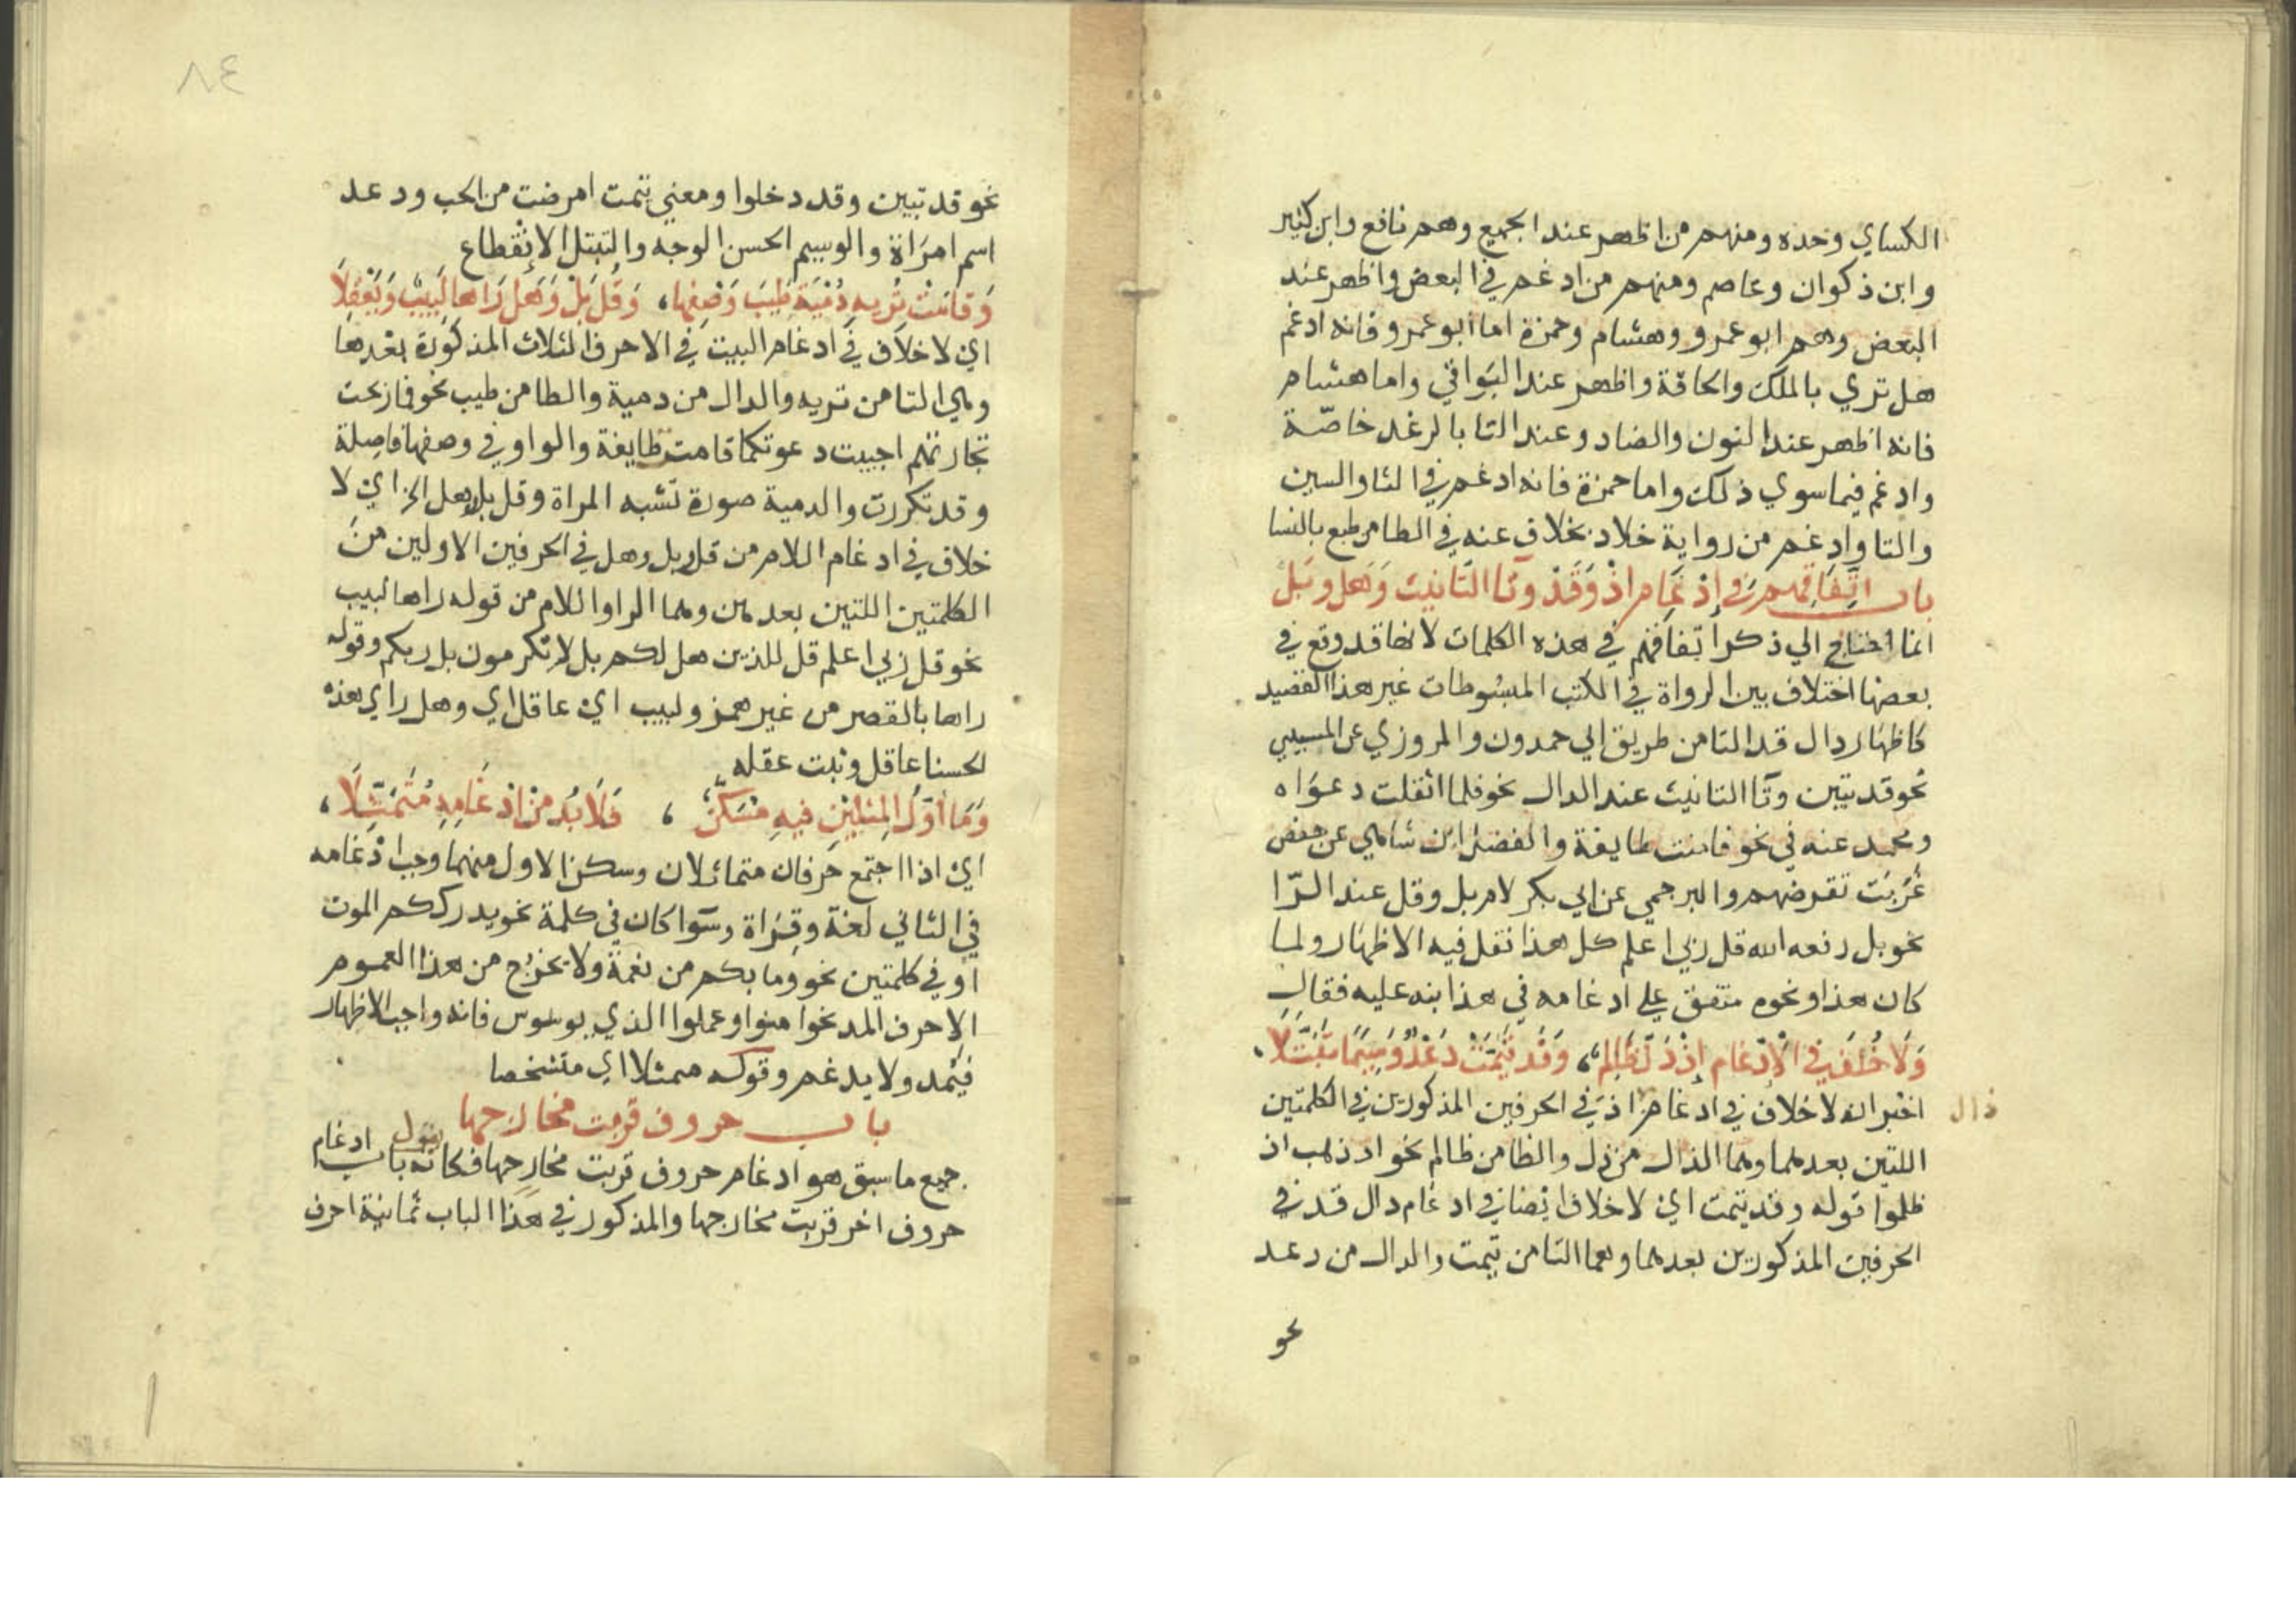 الكساي وحده ومنهم من اظهر عند الجميع وهم نافع وابن كثير
وابن ذكوان وعاصم ومنهم من ادغم في البعض واظهر عند
البعض وهم ابو عمرو وهشام وحمزة اما ابو عمرو فانه ادغم
هل تري بالملك والحاقة واظهر عند البواقي واما هشام
فانه اظهر عند النون والضاد وعند التا بالرعد خاصّة
وادغم فيما سوي ذلك واما حمزة فانه ادغم في الثا والسين
والتا وادغم من رواية خلاد بخلاف عنه في الطا من طبع بالنسا
باب اتِّفَاقِهِم في إدْغَامِ اذْ وَقَدْ وتَا التَّانيث وَهَل وبَل
انما احتاج الي ذكر اتفاقهم في هذه الكلمات لانها قد وقع في
بعضها اختلاف بين الرواة في الكتب المبسوطات غير هذا القصيد
كاظهار دال قد التا من طريق ابي حمدون والمروزي عن المسيبي
نحو قد تبين وتا التانيث عند الدال نحو فلما اثقلت دعوا ه
ومحمد عنه في نحو فامنت طايفة والفضل ابن شاهي عن حفص
غَرَبَت تقرضهم والبرجمي عن ابي بكر لام بل وقل عند الرّا
نحو بل رفعه الله قل ربي اعلم كل هذا نقل فيه الاظهار ولما
كان هذا ونحوه متفق علي ادغامه في هذا نبه عليه فقال
وَلَا خُلْفَ في الْإدْغَام إذْ ذَلَّ ظَالِمٌ، وَقَد تَيَّمَتْ دَعْدٌ وَسِيمًا تَبَتَّلَا
اخبر انه لا خلاف في ادغام ذال اذ في الحرفين المذكورين في الكلمتين
اللتين بعدهما وهما الذال من ذل والظا من ظالم نحو اذ ذهب اذ
ظلموا قوله وقد تيمت اي لا خلاف ايضا في ادغام دال قد في
الحرفين المذكورين بعدهما وهما التا من تيمت والدال من دعد
نحو
٨٤
نحو قد تبين وقد دخلوا ومعني تيمت امرضت من الحب ودعد
اسم امرَاة والوسيم الحسن الوجه والتبتل الانقطاع
وَقامَتْ تُرِيه دُمْيَة طِيبَ وَصْفِها، وَقُل بَلْ وَهَل رَاها لَبِيبٌ وَيَعْقِلَا
اي لا خلاف في ادغام البيت في الاحرف الثلاث المذكورة بعدها
وهي التا من تريه والدال من دمية والطا من طيب نحو فما ربحت
تجارتهم اجيبت دعوتكما قامت طايفة والواو في وصفها فاصلة
وقد تكررت والدمية صورة تشبه المراة وقل بل وهل الخ اي لا
خلاف في ادغام اللام من قل وبل وهل في الحرفين الاولين من
الكلمتين اللتين بعدهن وهما الرا واللام من قوله راها لبيب
نحو قل ربي اعلم قل للذين هل لكم بل لا تكرمون بل ربكم وقوله
راها بالقصر من غير همز ولبيب اي عاقل اي وهل راي هذه
الحسنا عاقل وثبت عقله
وَمَا أَوَّلُ المِثلَيْنِ فِيهِ مُسَكَّنٌ ، فَلَا بُدَّ مِنْ ادْغَامِهِ مُتَمَثِّلَا ،
اي اذا اجتمع حرفان متماثلان وسكن الاول منهما وجب ادغامه
في الثاني لغة وقراة وسوا كان في كلمة نحو يدرككم الموت
او في كلمتين نحو وما بكم من نعمة ولا يخرج من هذا العموم
الا حرف المد نحوا امنوا وعملوا الذي يوسوس فانه واجب الاظهار
فيُمد ولا يدغم وقوله ممثلا اي متشخصا
باب حروف قربت مخارجها
جميع ما سبق هو ادغام حروف قربت مخارجها فكانه يقول باب ادغام
حروف اخر قربت مخارجها والمذكور في هذا الباب ثمانية احرف